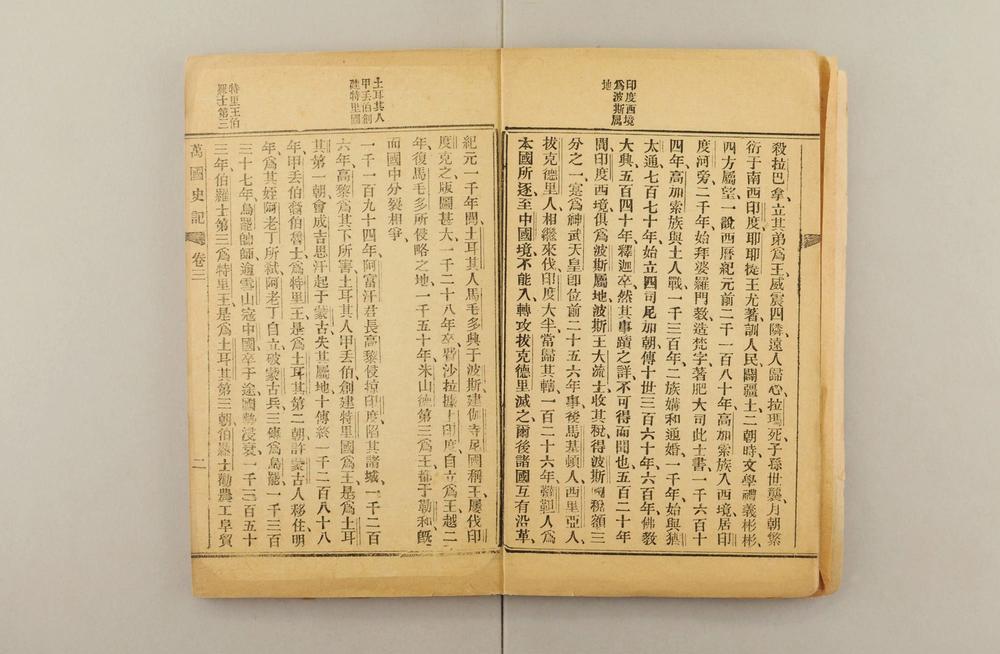 印度西境
為波斯属
地
殺拉巴拿、立其弟為王、威震四隣、遠人歸心、拉瑪死、子孫世襲、月朝繁
衍于南西印度、耶耶提王尤著、訓人民、闢疆土、二朝時文學禮義彬彬、
四方屬望、一說西曆紀元前二千一百八十年、高加索族入西境、居印
度河旁、二千年、始拜婆羅門教、造梵字、著肥大司此士書、一千六百十
四年、高加索族與土人戰、一千三百年、二族媾和通婚、一千年、始與猶
太通、七百七十年、始立四司尼加朝、傳十世、三百六十年、六百年、佛教
大興、五百四十年、釋迦卒、然其事蹟之詳、不可得而聞也、五百二十年
間、印度西境俱為波斯屬地、波斯王大流士收其稅、得波斯國稅額三
分之一、寔為神武天皇卽位前二十五六年事、後馬基頓人、西里亞人、
拔克德里人相繼來伐、印度大半當歸其轄、一百二十六年、韃靼人為
本國所逐、至中國境不能入、轉攻拔克德里滅之、爾後諸國互有沿革、
土耳其人
甲丢伯創
建特里國
特里王伯
羅士第三
紀元一千年間、土耳其人馬毛多興于波斯、建伽寺尼國稱王、屢伐印
度克之、版圖甚大、一千二十八年卒、壻沙拉據上印度、自立為王、越二
年、復馬毛多所侵略之地、一千五十年、米山德第三為王、都于勒和、旣
而國中分裂相爭、
一千一百九十四年、阿富汗君長高黎侵掠印度、陷其諸城、一千二百
六年、高黎為其下所害、土耳其人甲丢伯創建特里國為王、是為土耳
其第一朝、會成吉思汗起于蒙古、失其屬地、十傳終、一千二百八十八
年、甲丢伯裔伯魯士為特里王、是為土耳其第二朝、許蒙古人移住、明
年、為其姪阿老丁所弑、阿老丁自立、破蒙古兵三、雖為烏龍、一千三百
三十七年、烏龍帥師逾雪山寇中國、卒于途、國勢浸衰、一千三百五十
三年、伯羅士第三為特里王、是為土耳其第三朝、伯羅士勸農工阜貿
萬國史記
卷三
二